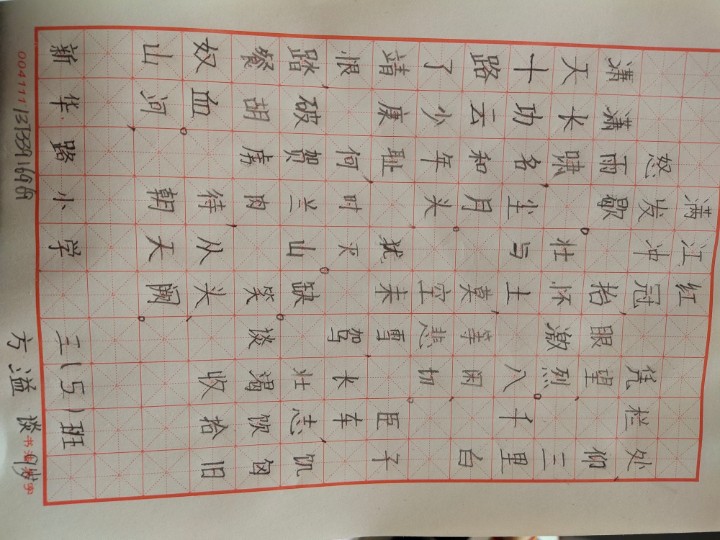 满江红
怒发冲冠凭栏处、
潇潇雨歇。抬眼望、仰
天长啸,壮怀激烈。三
十功名尘与土,八千里
路云和月。莫等闲、白
了少年头,空悲切。
靖康耻,犹未雪,臣子
恨,何时灭。驾长车,
踏破贺兰山缺。壮志饥
餐胡虏肉,笑谈渴饮匈
奴血。待从头、收拾旧
山河,朝天阙。
新华路小学 三(5)班
方溢谈